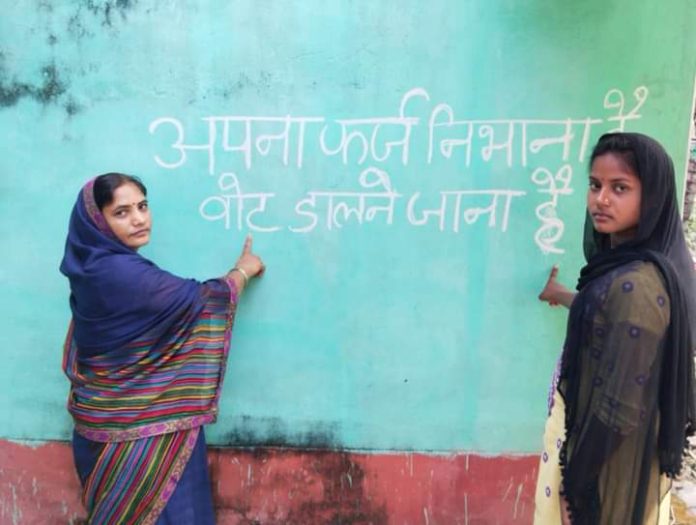 अपना फर्ज निभाना है
वोट डालने जाना है